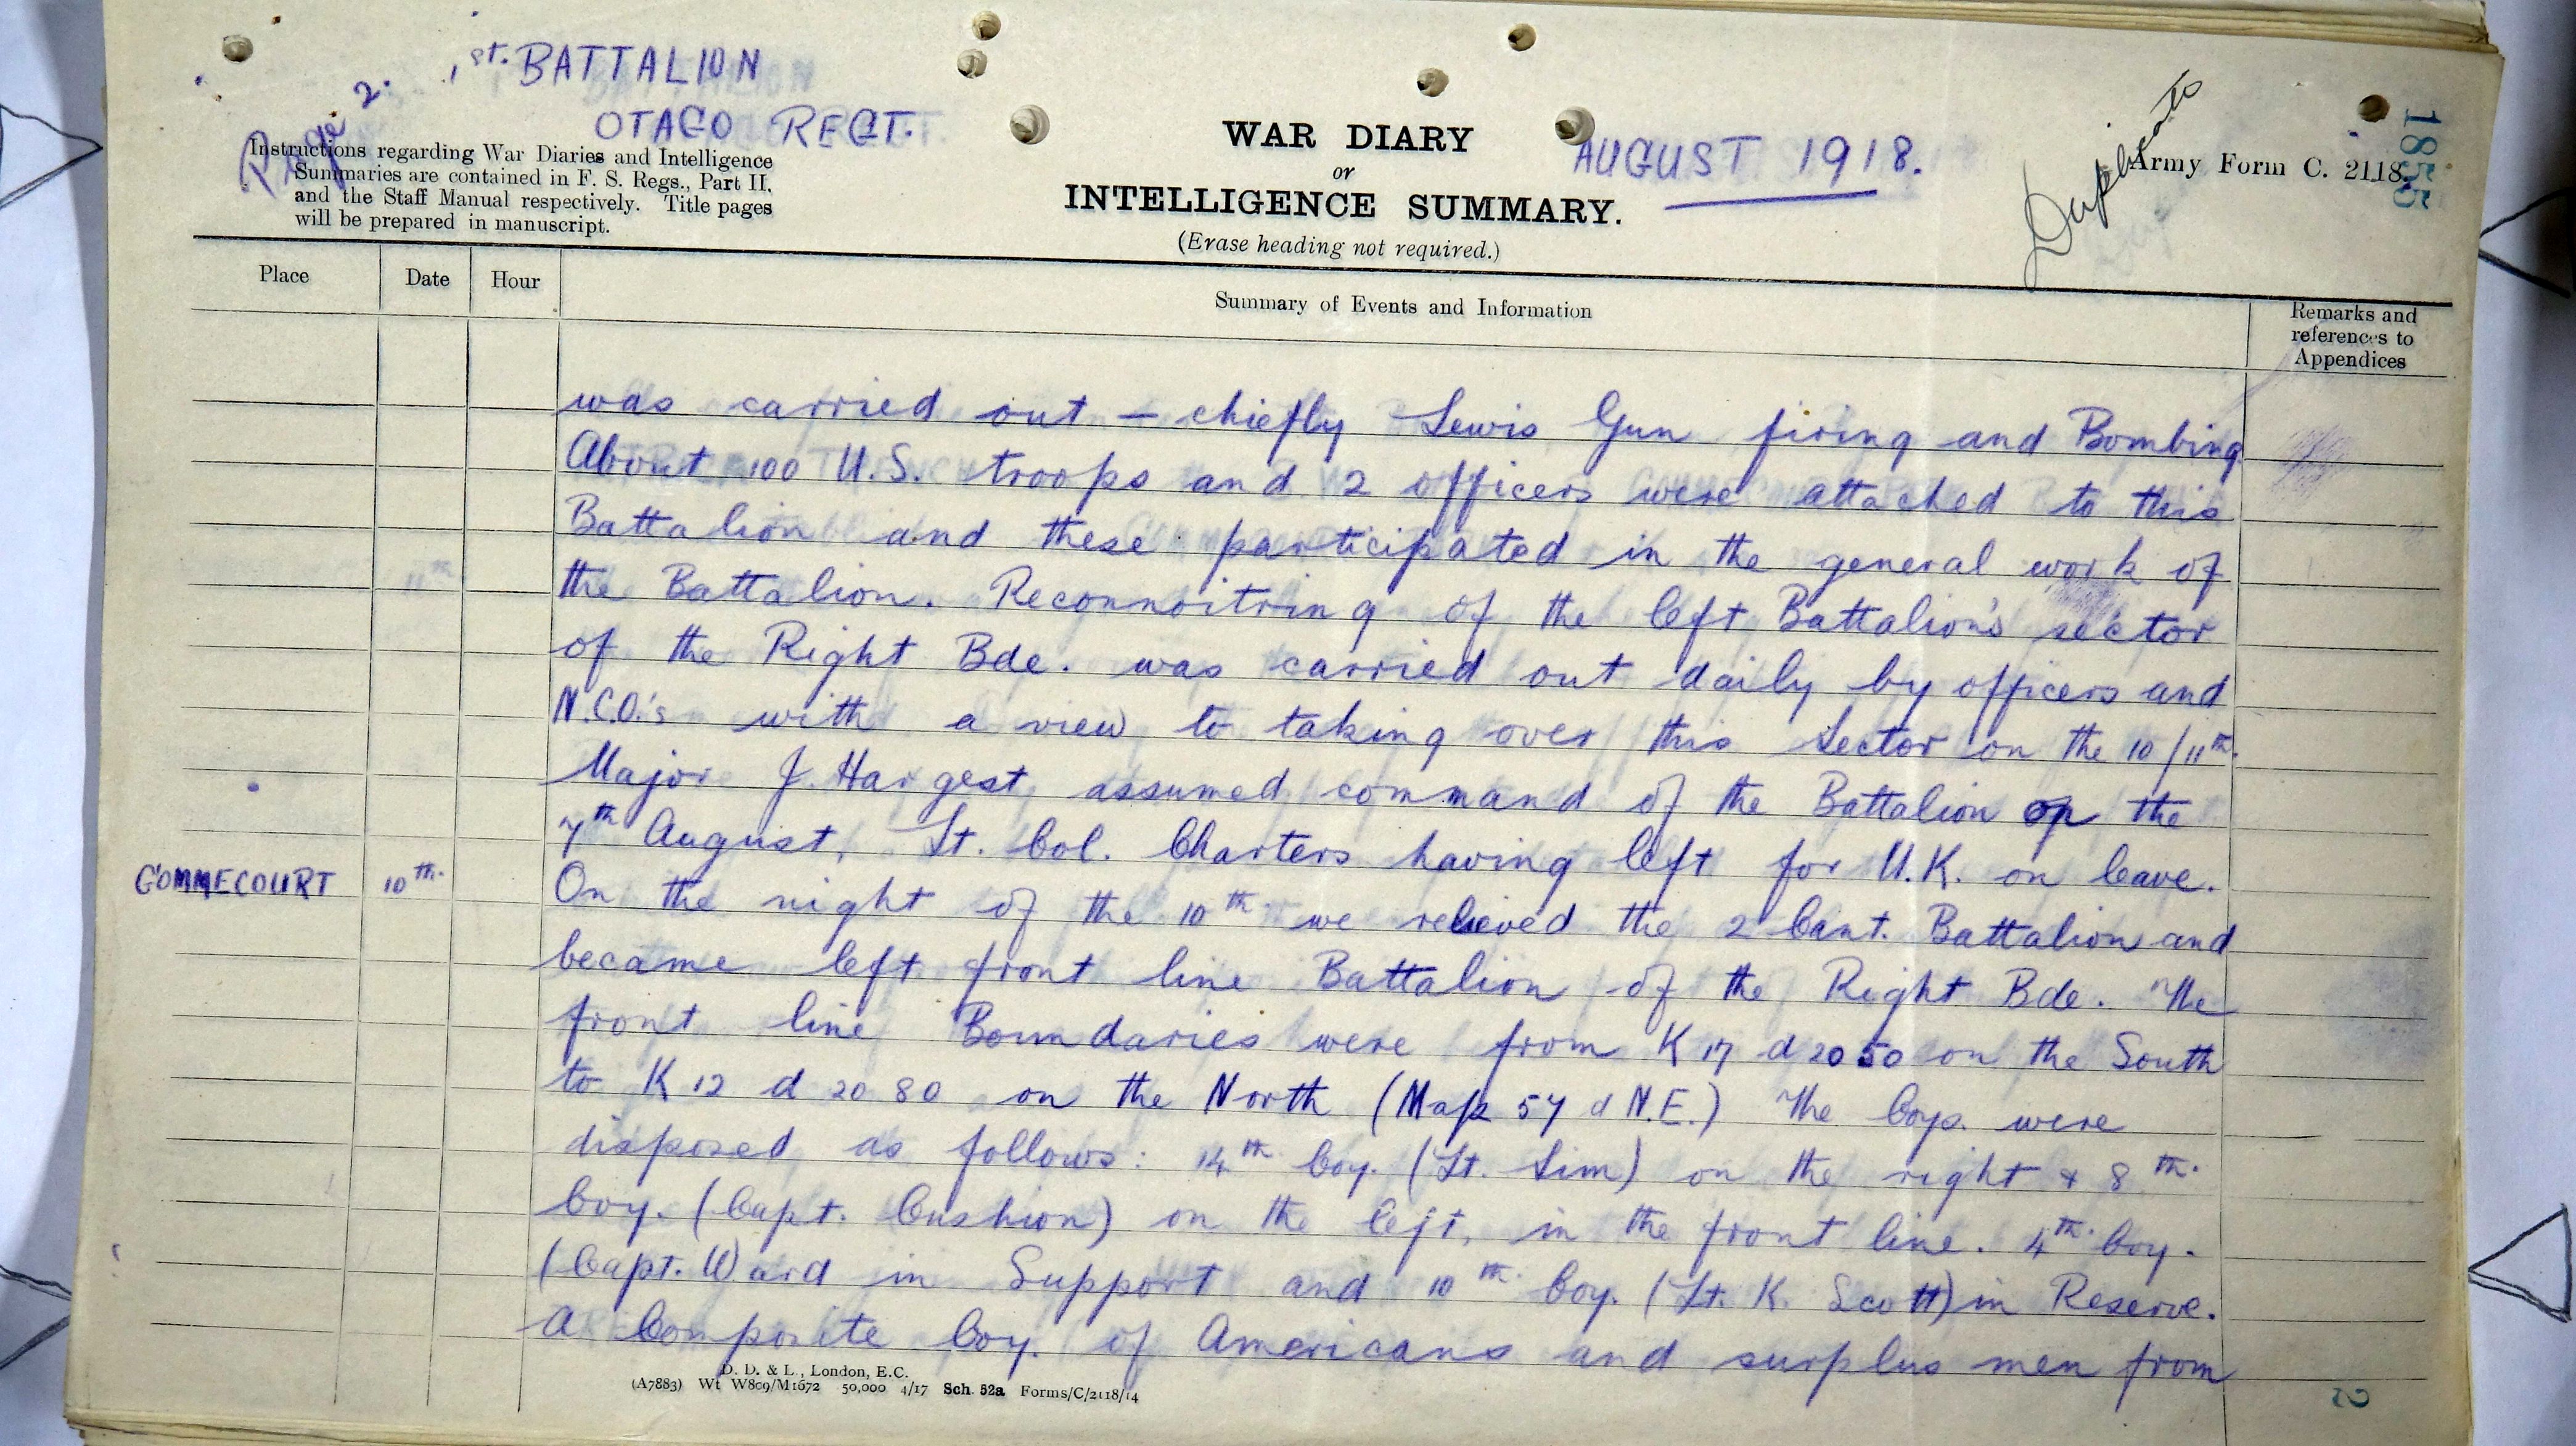 Page 2.
1st. BATTALION
OTAGO REGT.
Instructions regarding War Diaries and Intelligence
Summaries are contained in F. S. Regs., Part II,
and the Staff Manual respectively. Title pages
will be prepared in manuscript.
WAR DIARY
or
INTELLIGENCE SUMMARY.
(Erase heading not required.)
AUGUST 1918.
Duplicate
Army Form C. 2118.
1855
Place
Date
Hour
Summary of Events and Information
Remarks and
references to
Appendices
was carried out – chiefly Lewis Gun firing and Bombing
About 100 U.S. troops and 2 officers were attached to this
Battalion and these participated in the general work of
the Battalion. Reconnoitring of the left Battalion's sector
of the Right Bde. was carried out daily by officers and
N.C.O.'s with a view to taking over this Sector on the 10/11th.
Major J. Hargest assumed command of the Battalion on the
7th August, Lt. Col. Charters having left for U.K. on leave.
GOMMECOURT 10th. On the night of the 10th we relieved the 2 Cant. Battalion and
became left front line Battalion of the Right Bde. The
front line Boundaries were from K 17 d 20 50 on the South
to K 12 d 20 80 on the North (Map 57 d N.E.) The Coys. were
disposed as follows: 14th Coy. (Lt. Sim) on the right & 8th.
Coy. (Capt. Cushion) on the left, in the front line. 4th. Coy.
(Capt. Ward in Support and 10th Coy. (Lt. K. Scott) in Reserve.
A Composite Coy. of Americans and surplus men from
D. D. & L., London, E.C.
(A7883) Wt W809/M1672 50,000 4/17 Sch. 52a Forms/C/2118/14
2